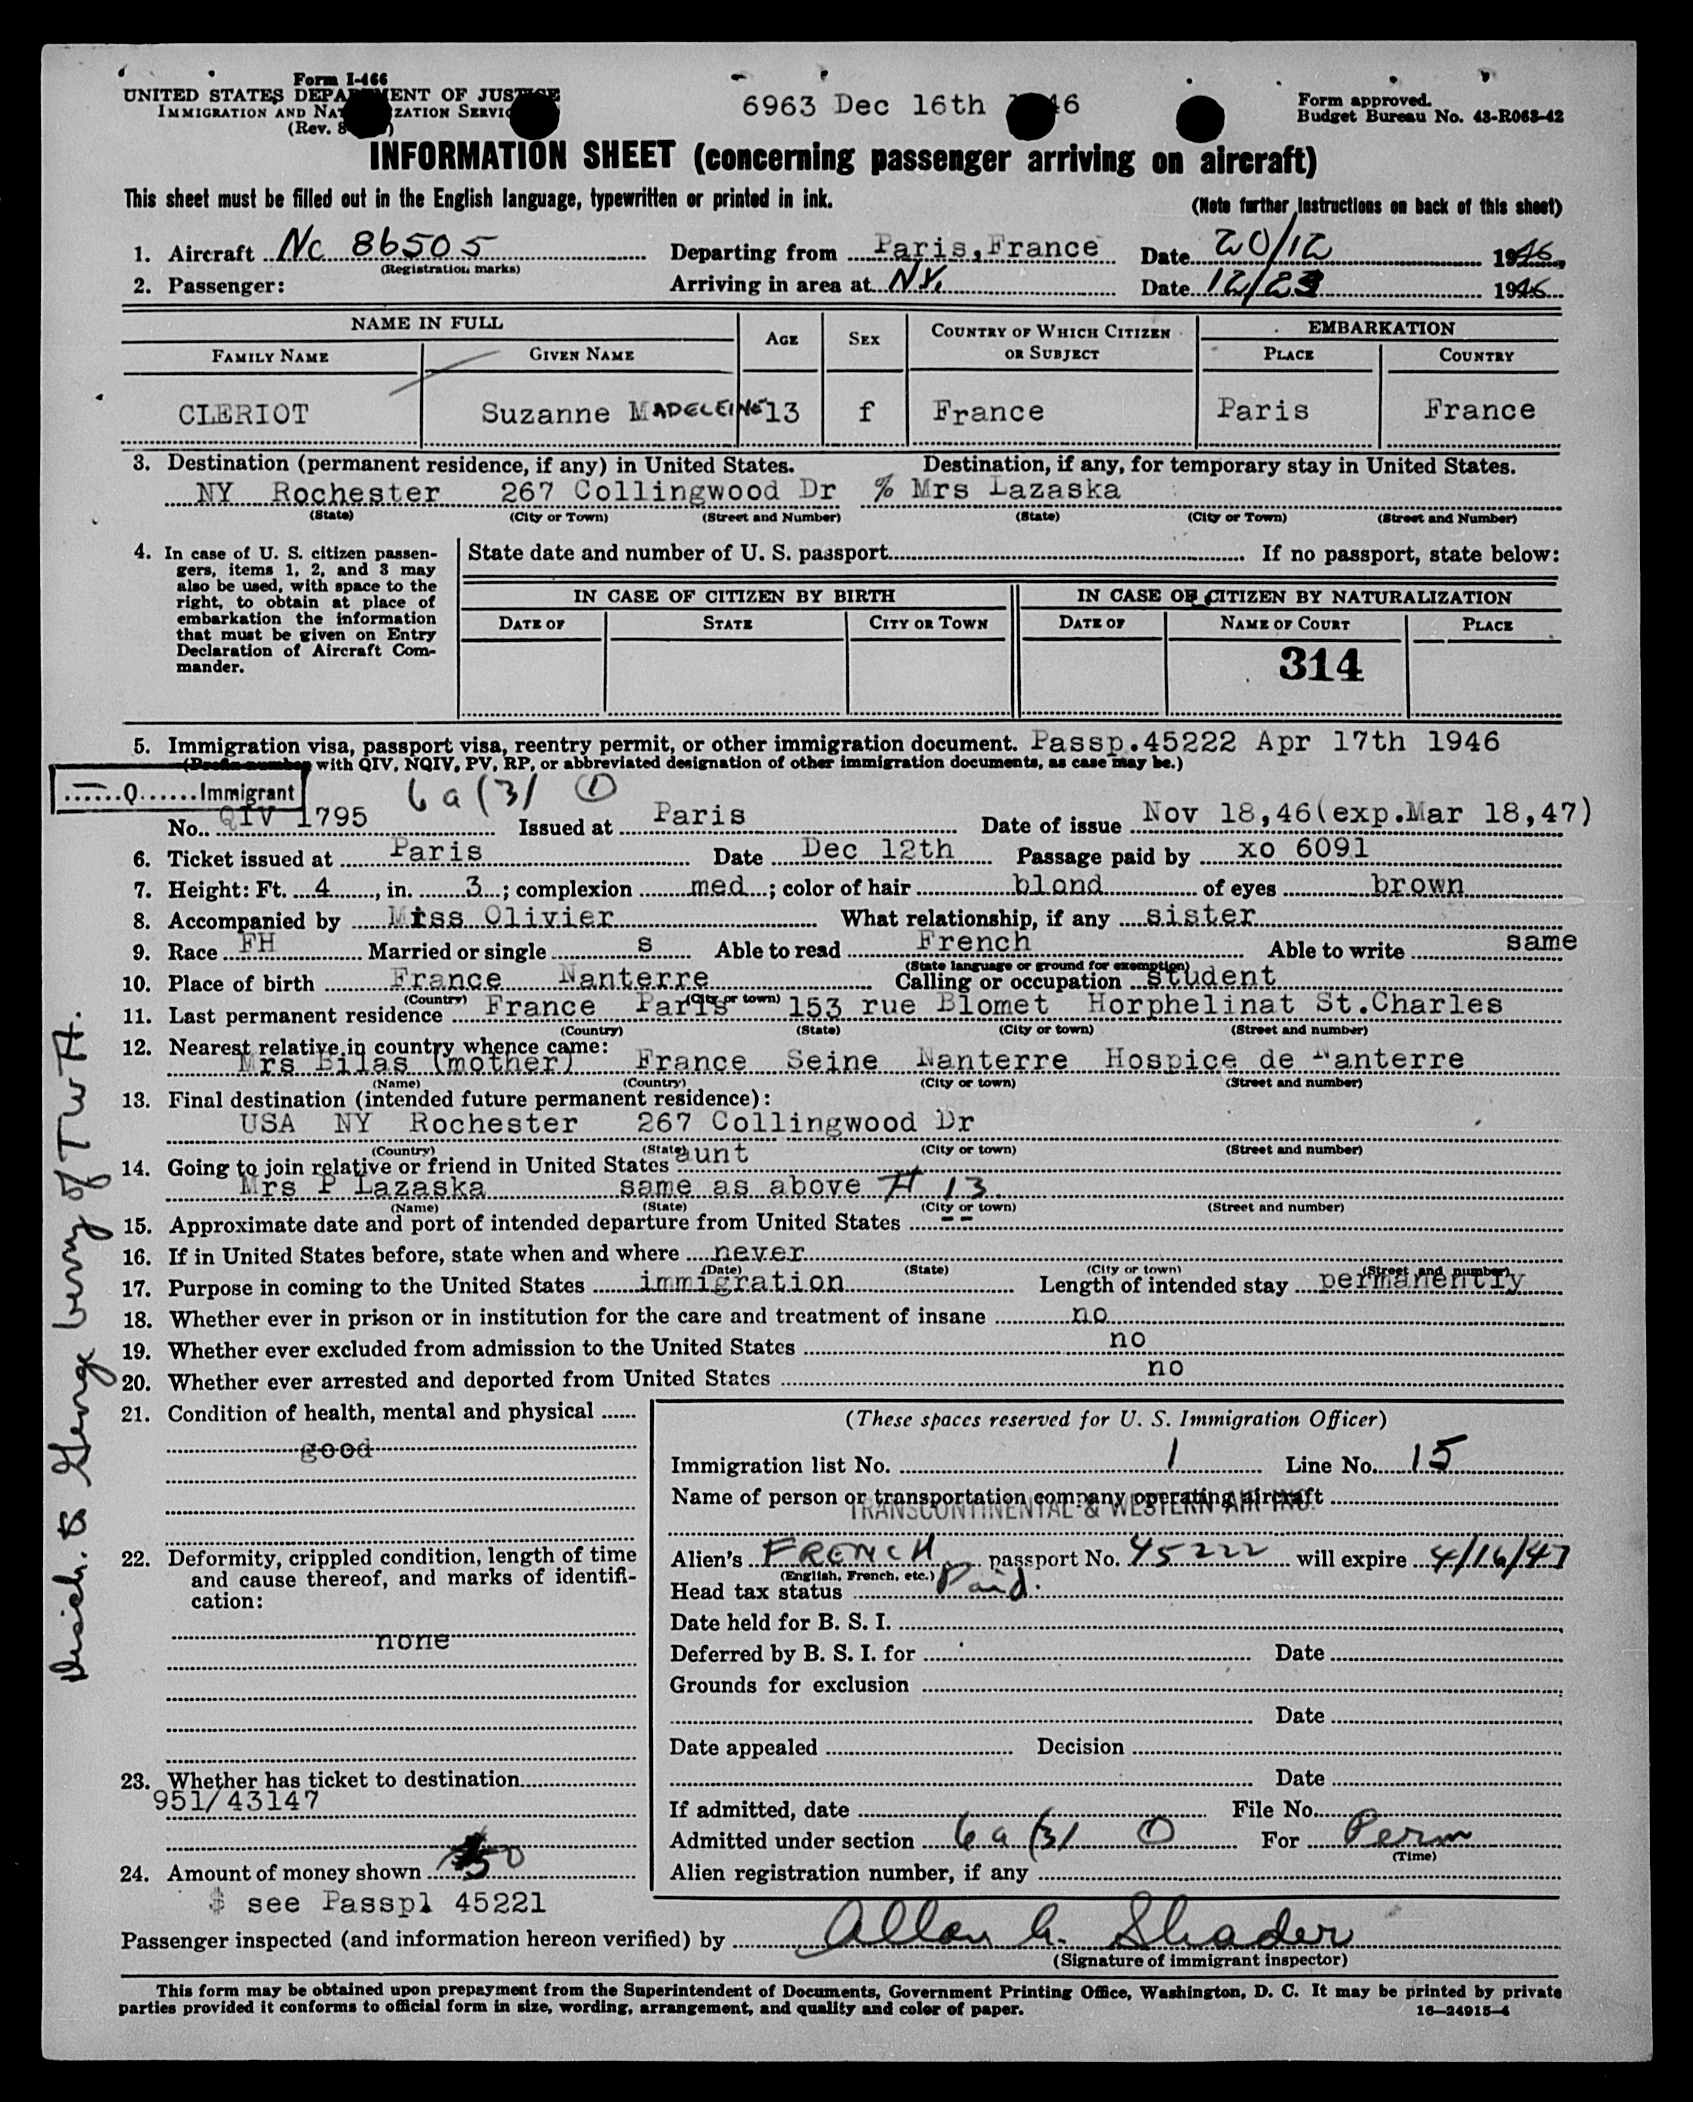 Form I-466
UNITED STATES DEPARTMENT OF JUSTICE
IMMIGRATION AND NATURALIZATION SERVICE
(Rev. 8
6963 Dec 16th 1946
Form approved.
Budget Bureau No. 43-R063-42
INFORMATION SHEET (concerning passenger arriving on aircraft)
This sheet must be filled out in the English language, typewritten or printed in ink.
(Note further instructions on back of this sheet)
1. Aircraft Nc 86505 Departing from Paris, France Date 20/12 1946,
(Registration marks)
2. Passenger: Arriving in area at N.Y. Date 12/23 1946
NAME IN FULL AGE SEX COUNTRY OF WHICH CITIZEN OR SUBJECT EMBARKATION
FAMILY NAME GIVEN NAME PLACE COUNTRY
CLERIOT Suzanne MADELEINE 13 f France Paris France
3. Destination (permanent residence, if any) in United States. Destination, if any, for temporary stay in United States.
NY Rochester 267 Collingwood Dr % Mrs Lazaska
(State) (City or Town) (Street and Number) (State) (City or Town) (Street and Number)
4. In case of U. S. citizen passen-
gers, items 1, 2, and 3 may
also be used, with space to the
right, to obtain at place of
embarkation the information
that must be given on Entry
Declaration of Aircraft Com-
mander.
State date and number of U. S. passport If no passport, state below:
IN CASE OF CITIZEN BY BIRTH IN CASE OF CITIZEN BY NATURALIZATION
DATE OF STATE CITY OR TOWN DATE OF NAME OF COURT PLACE
314
5. Immigration visa, passport visa, reentry permit, or other immigration document. Passp.45222 Apr 17th 1946
(Prefix number with QIV, NQIV, PV, RP, or abbreviated designation of other immigration documents, as case may be.)
Q Immigrant 6a(3) O
No. QIV 1795 Issued at Paris Date of issue Nov 18,46(exp.Mar 18,47)
6. Ticket issued at Paris Date Dec 12th Passage paid by xo 6091
7. Height: Ft. 4, in. 3; complexion med; color of hair blond of eyes brown
8. Accompanied by Miss Olivier What relationship, if any sister
9. Race FH Married or single s Able to read French Able to write same
(State language or ground for exemption)
10. Place of birth France Nanterre Calling or occupation student
(Country) (City or town)
11. Last permanent residence France Paris 153 rue Blomet Horphelinat St.Charles
(Country) (State) (City or town) (Street and number)
12. Nearest relative in country whence came:
Mrs Bilas (mother) France Seine Nanterre Hospice de Nanterre
(Name) (Country) (City or town) (Street and number)
13. Final destination (intended future permanent residence):
USA NY Rochester 267 Collingwood Dr
(Country) (State) (City or town) (Street and number)
14. Going to join relative or friend in United States aunt
Mrs P Lazaska same as above # 13.
(Name) (State) (City or town) (Street and number)
15. Approximate date and port of intended departure from United States --
16. If in United States before, state when and where never
(Date) (State) (City or town) (Street and number)
17. Purpose in coming to the United States immigration Length of intended stay permanently
18. Whether ever in prison or in institution for the care and treatment of insane no
19. Whether ever excluded from admission to the United States no
20. Whether ever arrested and deported from United States no
21. Condition of health, mental and physical
good
22. Deformity, crippled condition, length of time
and cause thereof, and marks of identifi-
cation:
none
23. Whether has ticket to destination
951/43147
24. Amount of money shown
$ see Passpl 45221
(These spaces reserved for U. S. Immigration Officer)
Immigration list No. 1 Line No. 15
Name of person or transportation company operating aircraft
TRANSCONTINENTAL & WESTERN AIR INC.
Alien's FRENCH passport No. 45222 will expire 4/16/47
(English, French, etc.)
Head tax status Paid.
Date held for B. S. I.
Deferred by B. S. I. for Date
Grounds for exclusion
Date
Date appealed Decision
Date
If admitted, date File No.
Admitted under section 6a(3) O For Perm
(Time)
Alien registration number, if any
Passenger inspected (and information hereon verified) by Allan G. Shader
(Signature of immigrant inspector)
This form may be obtained upon prepayment from the Superintendent of Documents, Government Printing Office, Washington, D. C. It may be printed by private
parties provided it conforms to official form in size, wording, arrangement, and quality and color of paper. 16—24915-4
Disch. to George Perry of TWA.